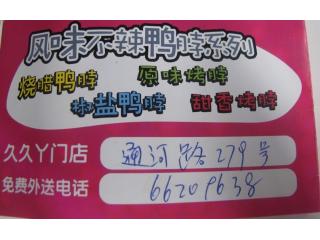 风味不辣鸭脖系列
烧腊鸭脖 原味烤脖
椒盐鸭脖 甜香烤脖
久久丫门店 通河路279号
免费外送电话 66209638